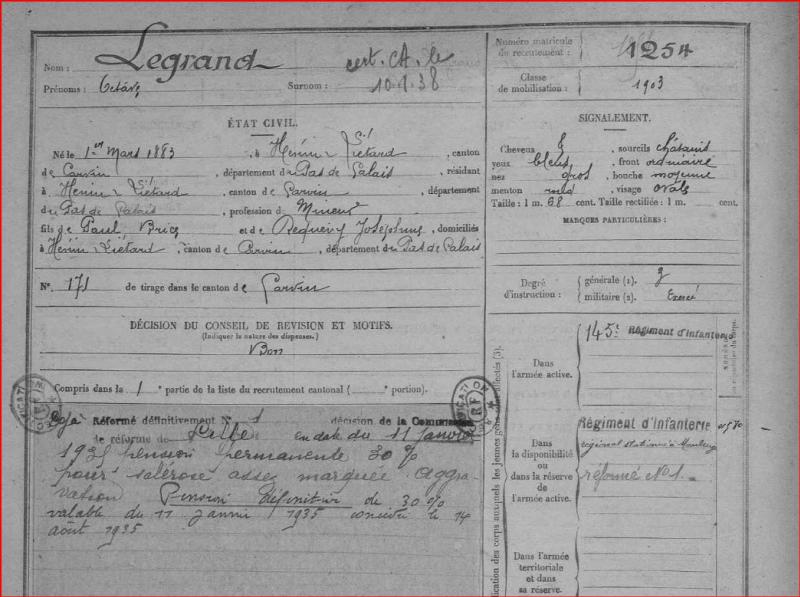 Nom : Legrand
cert. CA. le
10.1.38
Prénoms : Octave
Surnom :
ÉTAT CIVIL.
Né le 1er Mars 1883, à Hénin-Liétard, canton
de Carvin, département du Pas de Calais, résidant
à Hénin-Liétard, canton de Carvin, département
du Pas de Calais, profession de Mineur
fils de Paul et de Josephine, domiciliés
à Hénin Liétard, canton de Carvin, département du Pas de Calais
N° 171 de tirage dans le canton de Carvin
DÉCISION DU CONSEIL DE REVISION ET MOTIFS.
(Indiquer la nature des dispenses.)
Bon
Compris dans la 1e partie de la liste du recrutement cantonal ( portion).
Réformé définitivement N° 1 décision de la Commission
de réforme de en date du 11 janvier
1935 pension permanente 30 %
pour sclérose assez marquée Aggra-
vation Pension définitive de 30 %
valable du 11 janvier 1935 concédée le 14
août 1935
Numéro matricule
du recrutement : 1254
Classe
de mobilisation : 1903
SIGNALEMENT.
Cheveux et sourcils châtains
yeux bleus, front ordinaire
nez gros, bouche moyenne
menton rond, visage ovale
Taille : 1 m. 68 cent. Taille rectifiée : 1 m. cent.
MARQUES PARTICULIÈRES :
Degré
d'instruction :
générale (1). 3
militaire (2). Exercé
Dans
l'armée active.
145e Régiment d'Infanterie
Dans
la disponibilité
ou
dans la réserve
de
l'armée active.
Régiment d'Infanterie
régional stationné à
réformé N° 1.
Dans l'armée
territoriale
et dans
sa réserve